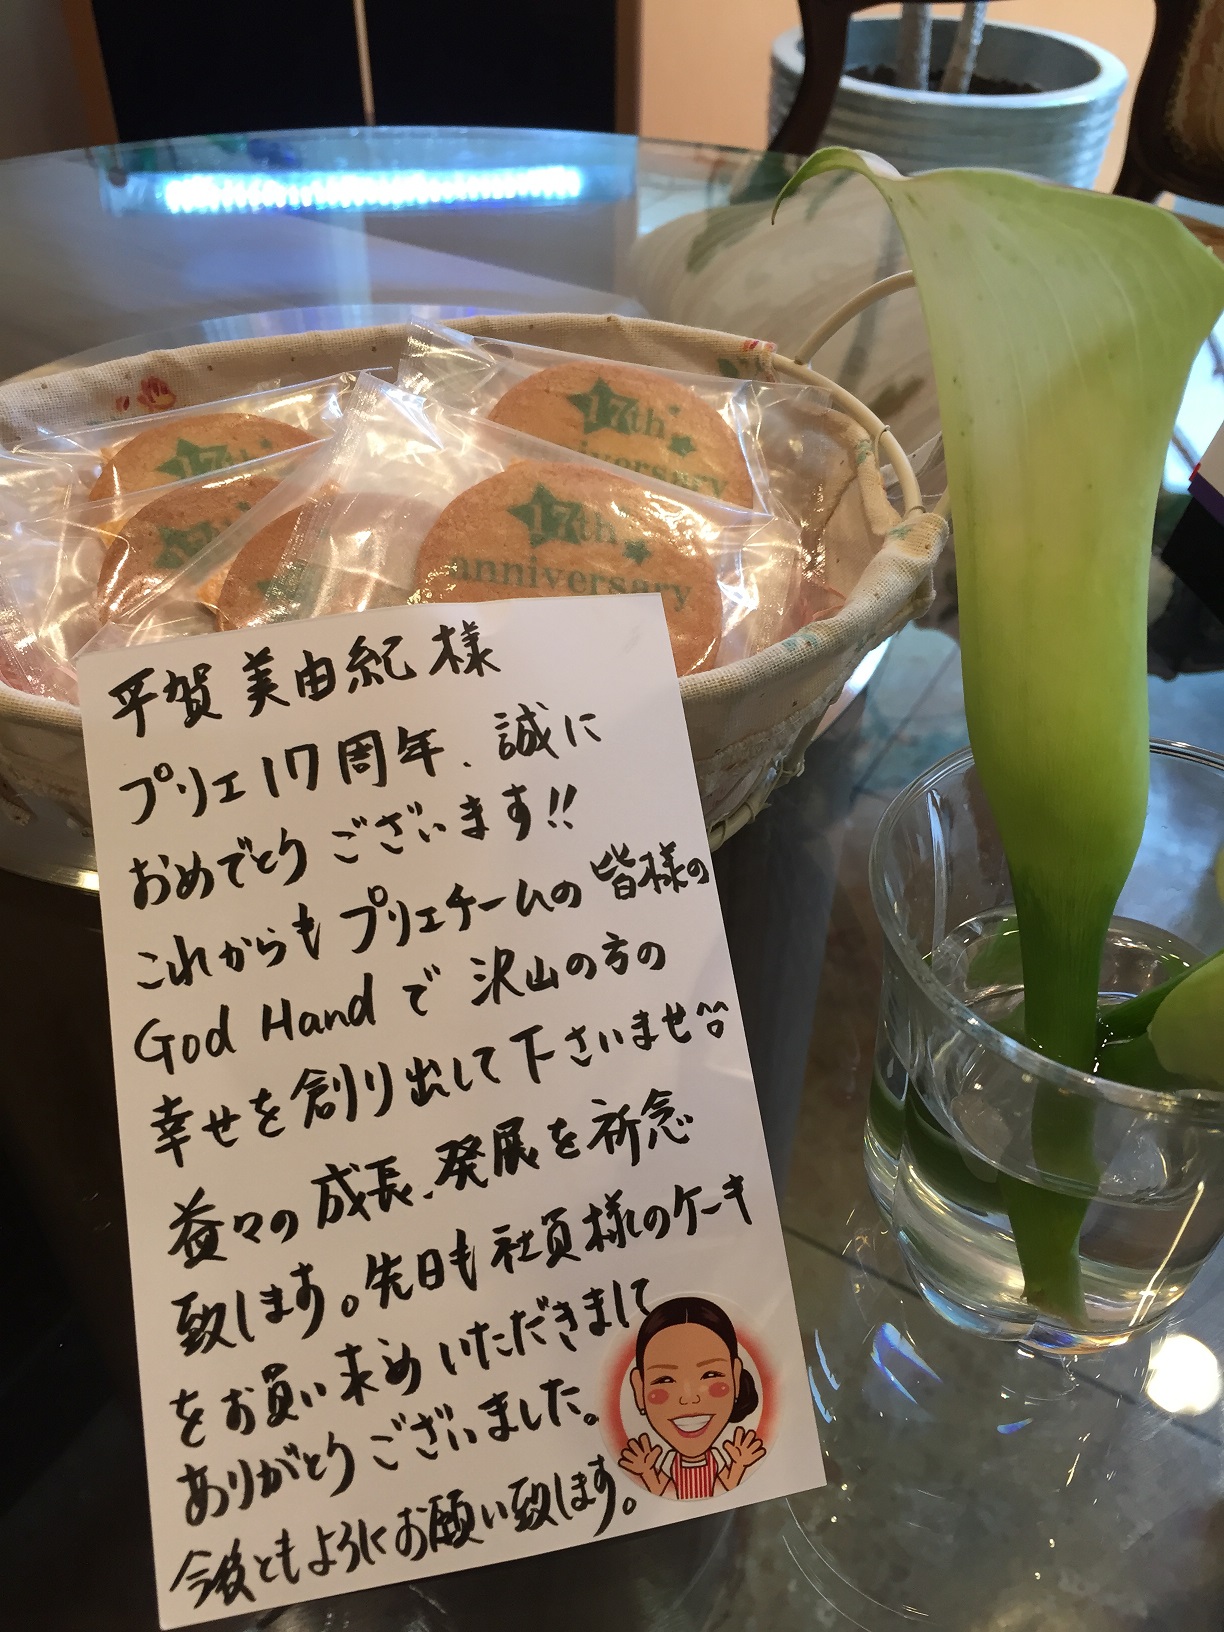 17th
17th
anniversary
17th
anniversary
平賀 美由紀 様
プリエ17周年、誠に
おめでとうございます!!
これからもプリエチームの皆様の
God Handで 沢山の方の
幸せを創り出して下さいませ^^
益々の成長、発展を祈念
致します。先日も社員様のケーキ
をお買い求めいただきまして
ありがとうございました。
今後ともよろしくお願い致します。